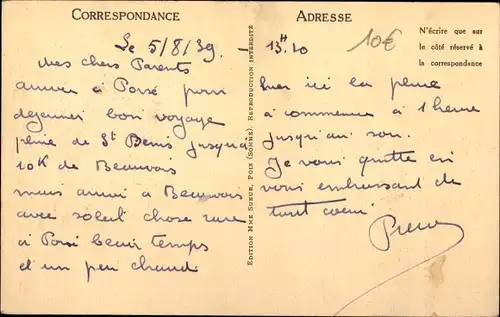 CORRESPONDANCE
Le 5/8/39
Mes chers Parents
arrivé à Poix pour
déjeuner bon voyage
pluie de St Denis jusqu'à
10K de Beauvais
mais arrivé à Beauvais
avec soleil chose rare
à Poix beau temps
et un peu chaud
EDITION MME SUEUR, POIX (SOMME). REPRODUCTION INTERDITE
ADRESSE
10€
N'écrire que sur
le côté réservé à
la correspondance
13H10
hier ici la pluie
a commencé à 1 heure
jusqu'au soir.
Je vous quitte en
vous embrassant de
tout coeur